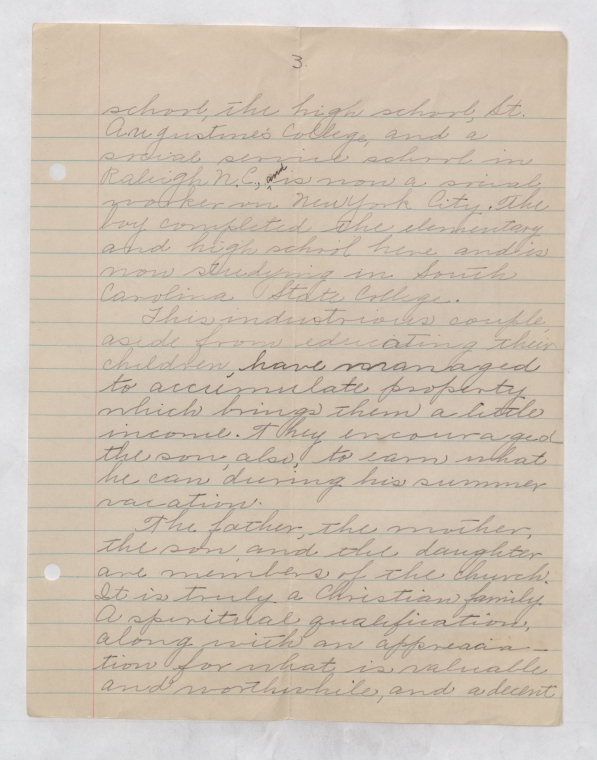 3
school, the high school, St.
Augustine's College, and a
social service school in
Raleigh N.C., and is now a social
worker in New York City. The
boy completed the elementary
and high school here and is
now studying in South
Carolina State College.
This industrious couple,
aside from educating their
children, have managed
to accumulate property
which brings them a little
income. They encouraged
the son, also, to earn what
he can during his summer
vacation.
The father, the mother,
the son and the daughter
are members of the church.
It is truly a Christian family.
A spiritual qualification,
along with an apprecia-
tion for what is valuable
and worthwhile, and a decent